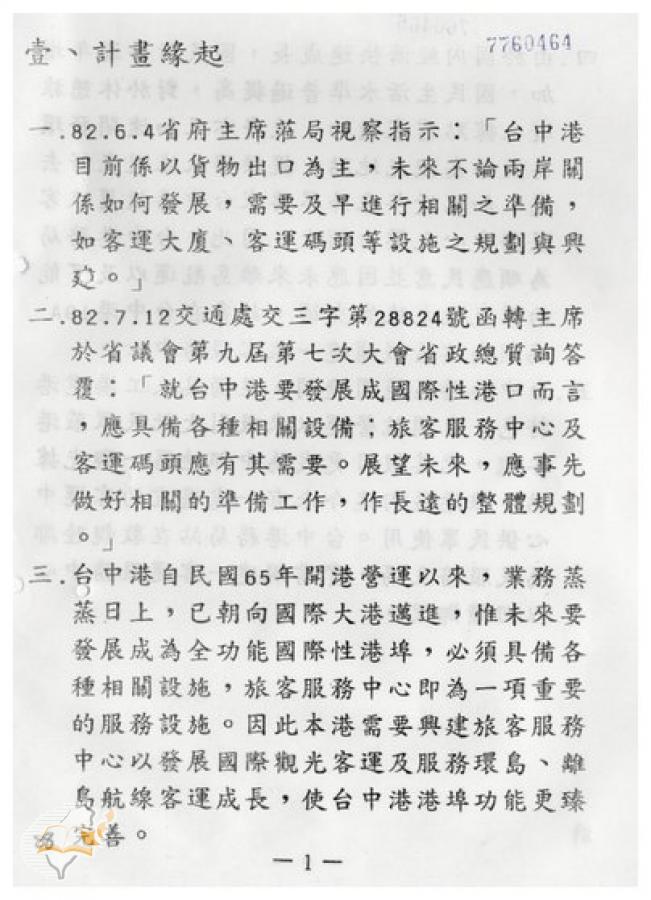 7760464
壹、計畫緣起
一.82.6.4省府主席蒞局視察指示:「台中港
目前係以貨物出口為主,未來不論兩岸關
係如何發展,需要及早進行相關之準備,
如客運大廈、客運碼頭等設施之規劃與興
建。」
二.82.7.12交通處交三字第28824號函轉主席
於省議會第九屆第七次大會省政總質詢答
覆:「就台中港要發展成國際性港口而言
,應具備各種相關設備;旅客服務中心及
客運碼頭應有其需要。展望未來,應事先
做好相關的準備工作,作長遠的整體規劃
。」
三.台中港自民國65年開港營運以來,業務蒸
蒸日上,已朝向國際大港邁進,惟未來要
發展成為全功能國際性港埠,必須具備各
種相關設施,旅客服務中心即為一項重要
的服務設施。因此本港需要興建旅客服務
中心以發展國際觀光客運及服務環島、離
島航線客運成長,使台中港港埠功能更臻
完善。
—1—